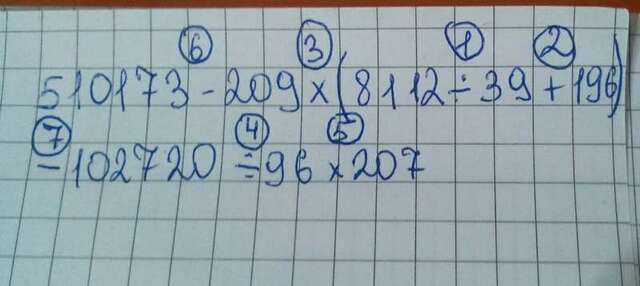 6 3 1 2
510173 - 209 × (8112 ÷ 39 + 196)
7 4 5
- 102720 ÷ 96 × 207